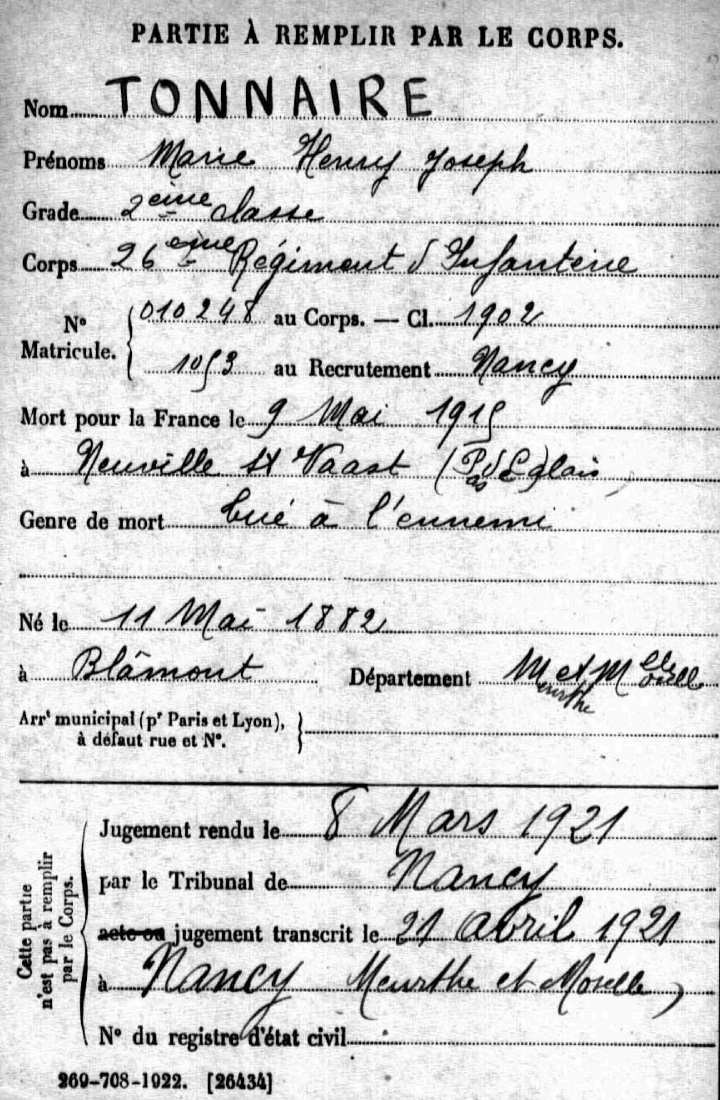 PARTIE À REMPLIR PAR LE CORPS.
Nom TONNAIRE
Prénoms Marie Henry Joseph
Grade 2ème classe
Corps 26ème Régiment d'Infanterie
N° Matricule. 010248 au Corps. — Cl. 1902
1053 au Recrutement Nancy
Mort pour la France le 9 Mai 1915
à Neuville St Vaast (Pas d Calais)
Genre de mort tué à l'ennemi
Né le 11 Mai 1882
à Blâmont Département M et M elle
Meurthe Moselle
Arrt municipal (pr Paris et Lyon),
à défaut rue et N°.
Cette partie n'est pas à remplir par le Corps.
Jugement rendu le 8 Mars 1921
par le Tribunal de Nancy
acte ou jugement transcrit le 21 Avril 1921
à Nancy Meurthe et Moselle)
N° du registre d'état civil
269-708-1922. [26434]